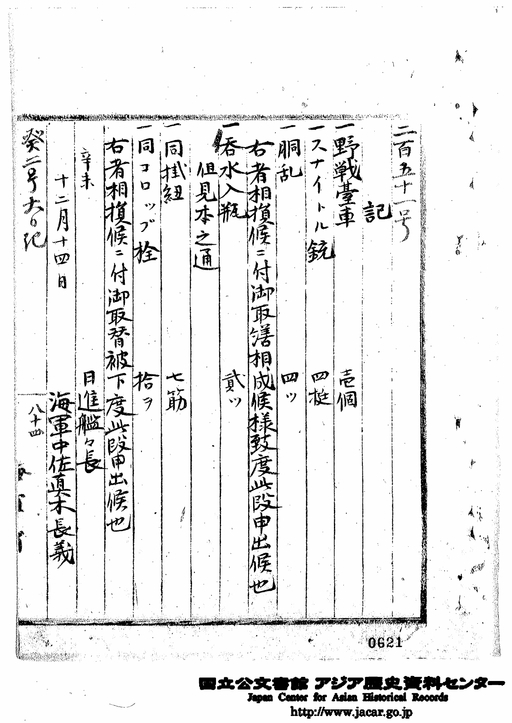 二百五十一号
記
一野戦臺車 壱個
一スナイトル銃 四挺
一胴乱 四ッ
右者相損候ニ付御取繕相成候様致度此段申出候也
一呑水入瓶 貳ッ
但見本之通
一同掛紐 七筋
一同コロップ栓 拾ヲ
右者相損候ニ付御取替被下度此段申出候也
辛未
十二月十四日
日進艦々長
海軍中佐真木長義
癸二号大日記
八十四
0621
国立公文書館 アジア歴史資料センター
Japan Center for Asian Historical Records
http://www.jacar.go.jp